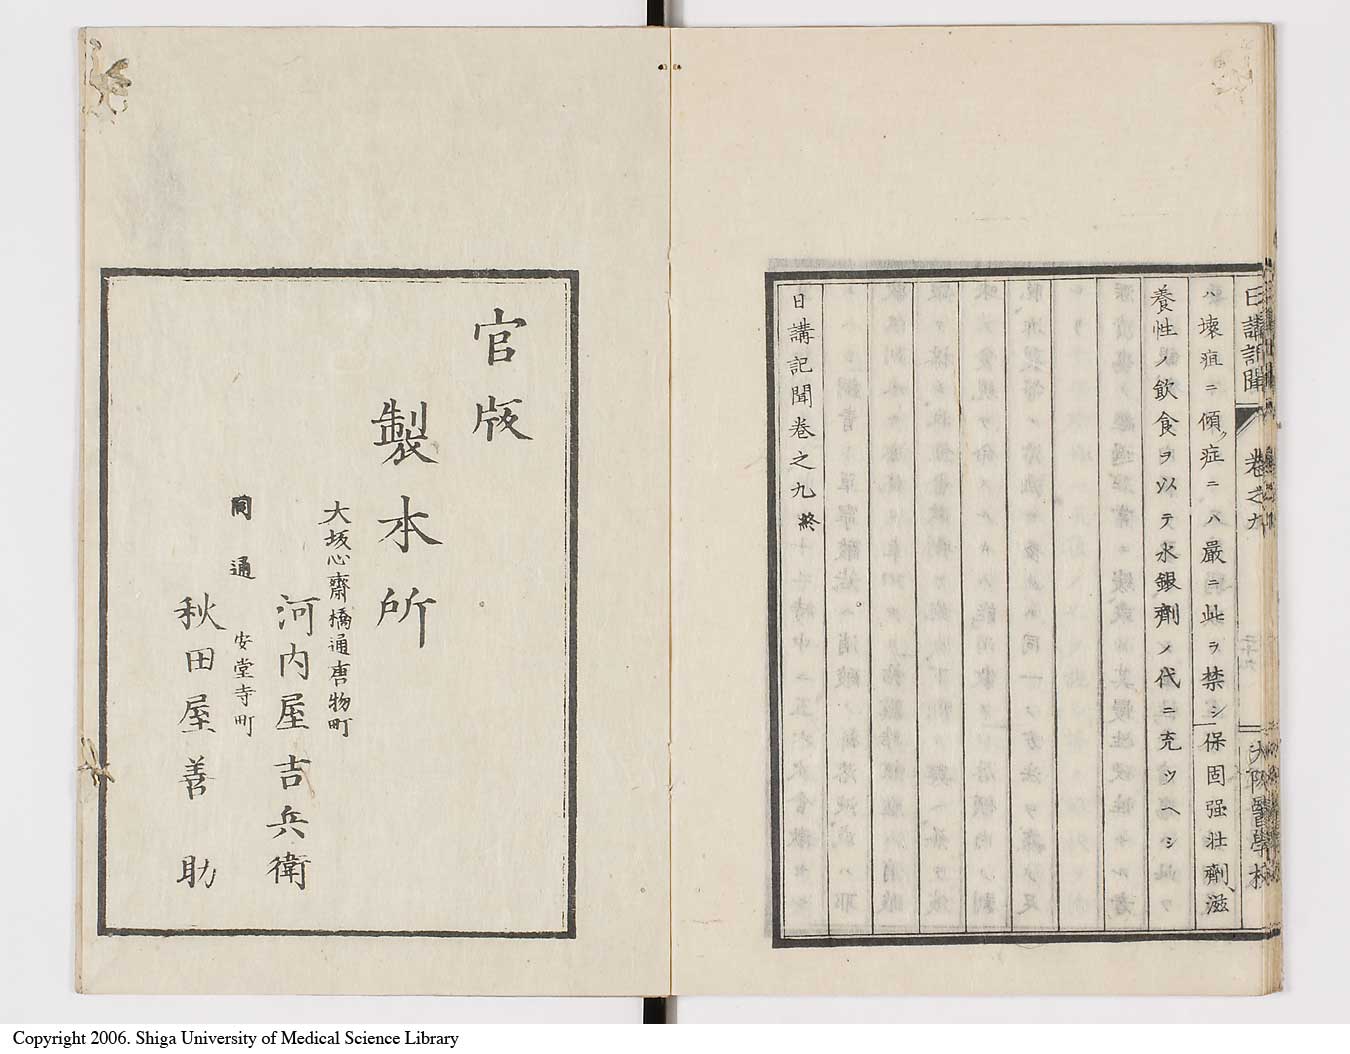 日講記聞 卷之九 大阪醫學校
ハ壞疽ニ傾ク症ニハ嚴ニ此ヲ禁シ保固强壯劑滋
養性ノ飮食ヲ以テ水銀劑ノ代ニ充ツヘシ
日講記聞卷之九終
官版
製本所
大坂心齋橋通唐物町
河內屋吉兵衛
同通安堂寺町
秋田屋善助
Copyright 2006. Shiga University of Medical Science Library